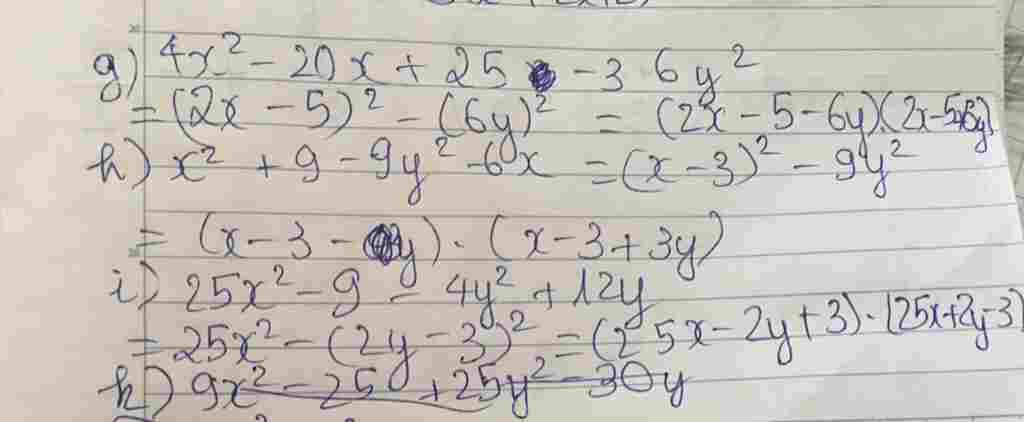 g) 4x² - 20x + 25 - 36y²
= (2x - 5)² - (6y)² = (2x - 5 - 6y).(2x - 5+6y)
h) x² + 9 - 9y² - 6x = (x - 3)² - 9y²
= (x - 3 - y) . (x - 3 + 3y)
i) 25x² - 9 - 4y² + 12y
= 25x² - (2y - 3)² = (25x - 2y + 3) . (25x + 2y - 3)
k) 9x² - 25 + 25y² - 30y